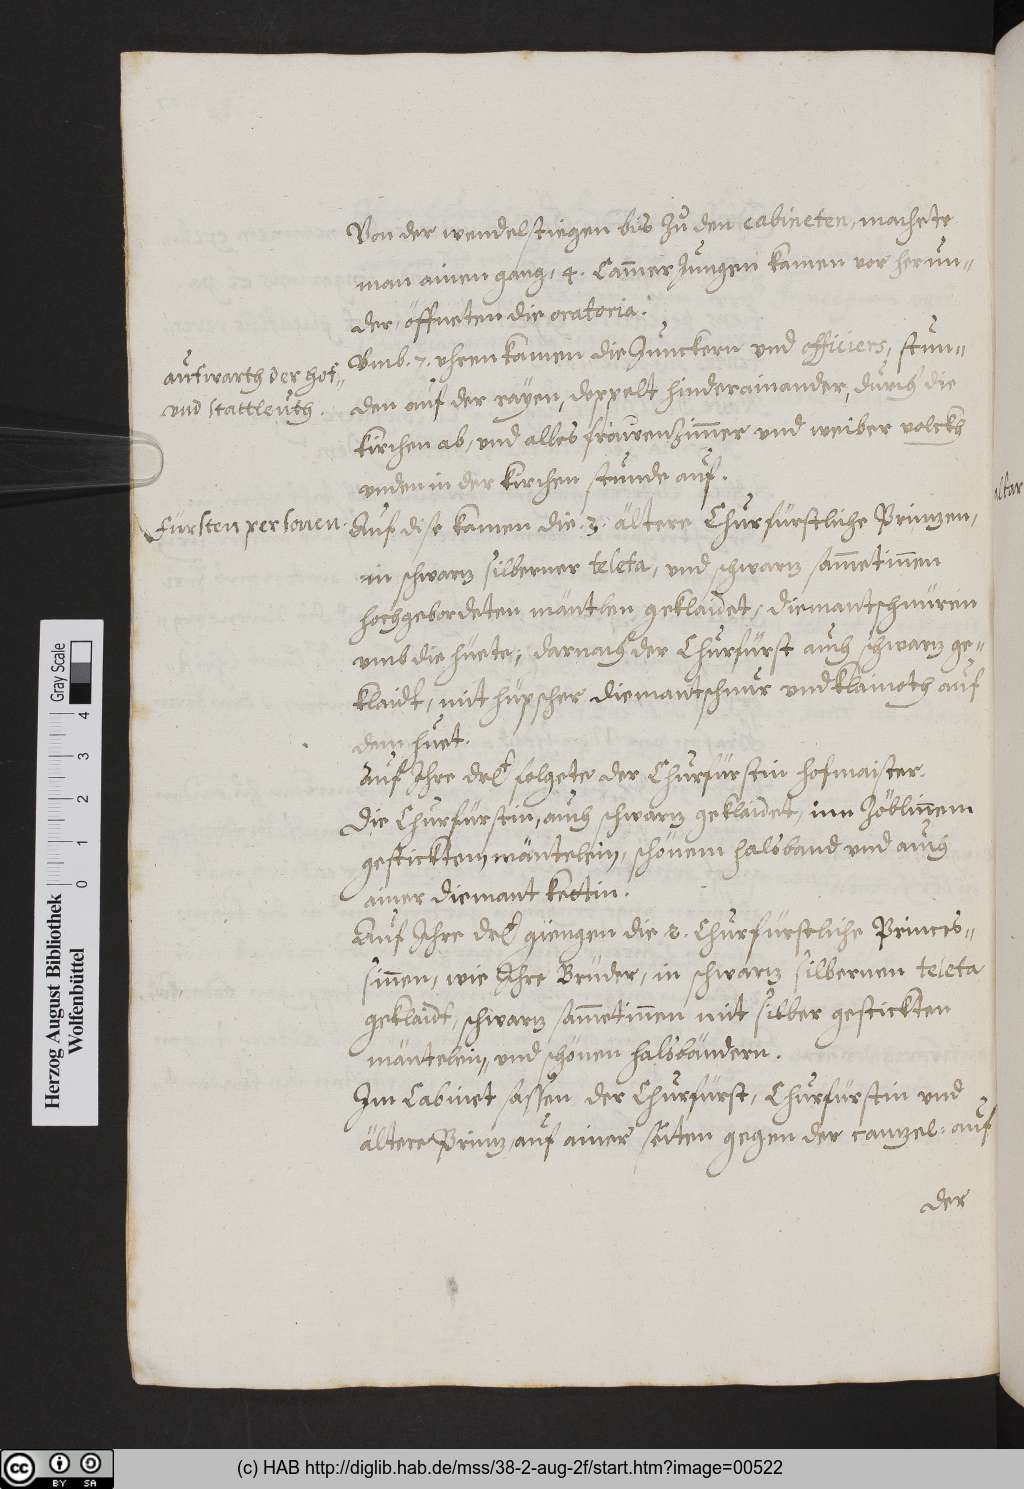 Von der wendelstiegen bis Zu den cabineten, machete
man ainen gang, 4. Cam̄er Jungen kamen vor herun=
der, öffneten die oratoria.
aufwarth der Hof=
und Stattleuth.
Vmb. 7. uhren kamen die Junckern und officiers, stun=
den auf der rayen, doppelt hinderainander, durch die
kirchen ab, und alles frauenzim̄er und weiber volckh
unden in der kirchen stunde auf.
Fürsten personen.
Auf dise kamen die .3. ältere Churfürstliche Prinzen,
in schwarz silberner teleta, und schwarz sam̄etin̄en
hochgebordeten mäntlen geklaidet, diemantschnüren
umb die hüete, darnach der Churfürst auch schwarz ge=
klaidt, mit hüpscher diemantschnur und klainoth auf
dem huet.
Auf Ihre drl. folgete der Churfürstin hofmaister.
Die Churfürstin, auch schwarz geklaidet, inn Zöblin̄em
gestickten mäntelein, schönem halsband und auch
ainer diemant kettin.
Auf Ihre drl. giengen die 2. Churfürstliche Princes=
sin̄en, wie Ihre Brüder, in schwarz silbernen teleta
geklaidt, schwarz sam̄etin̄en mit silber gestickten
mäntelein, und schönen halsbändern.
Im Cabinet sassen der Churfürst, Churfürstin und
ältere Prinz, auf ainer seiten gegen der canzel: auf
der
altar
Herzog August Bibliothek
Wolfenbüttel
0 1 2 3 4
Gray Scale
cc BY SA
(c) HAB http://diglib.hab.de/mss/38-2-aug-2f/start.htm?image=00522